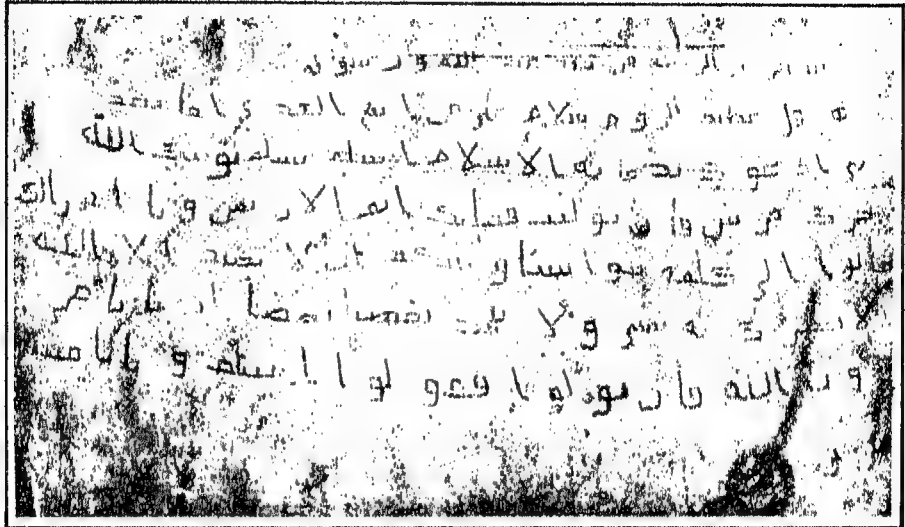 الله ورسوله
هرقل عظيم الروم سلام على من اتبع الهدى اما بعد
ادعوك بدعاية الاسلام اسلم تسلم يوتك الله
مرتين فان توليت فعليك اثم الاريسين ويا اهل
تعالوا الى كلمة سوا بيننا وبينكم ان لا نعبد الا الله
ولا يتخذ بعضنا بعضا اربابا من
دون الله فان تولوا فقولوا اشهدوا بانا مسلمون